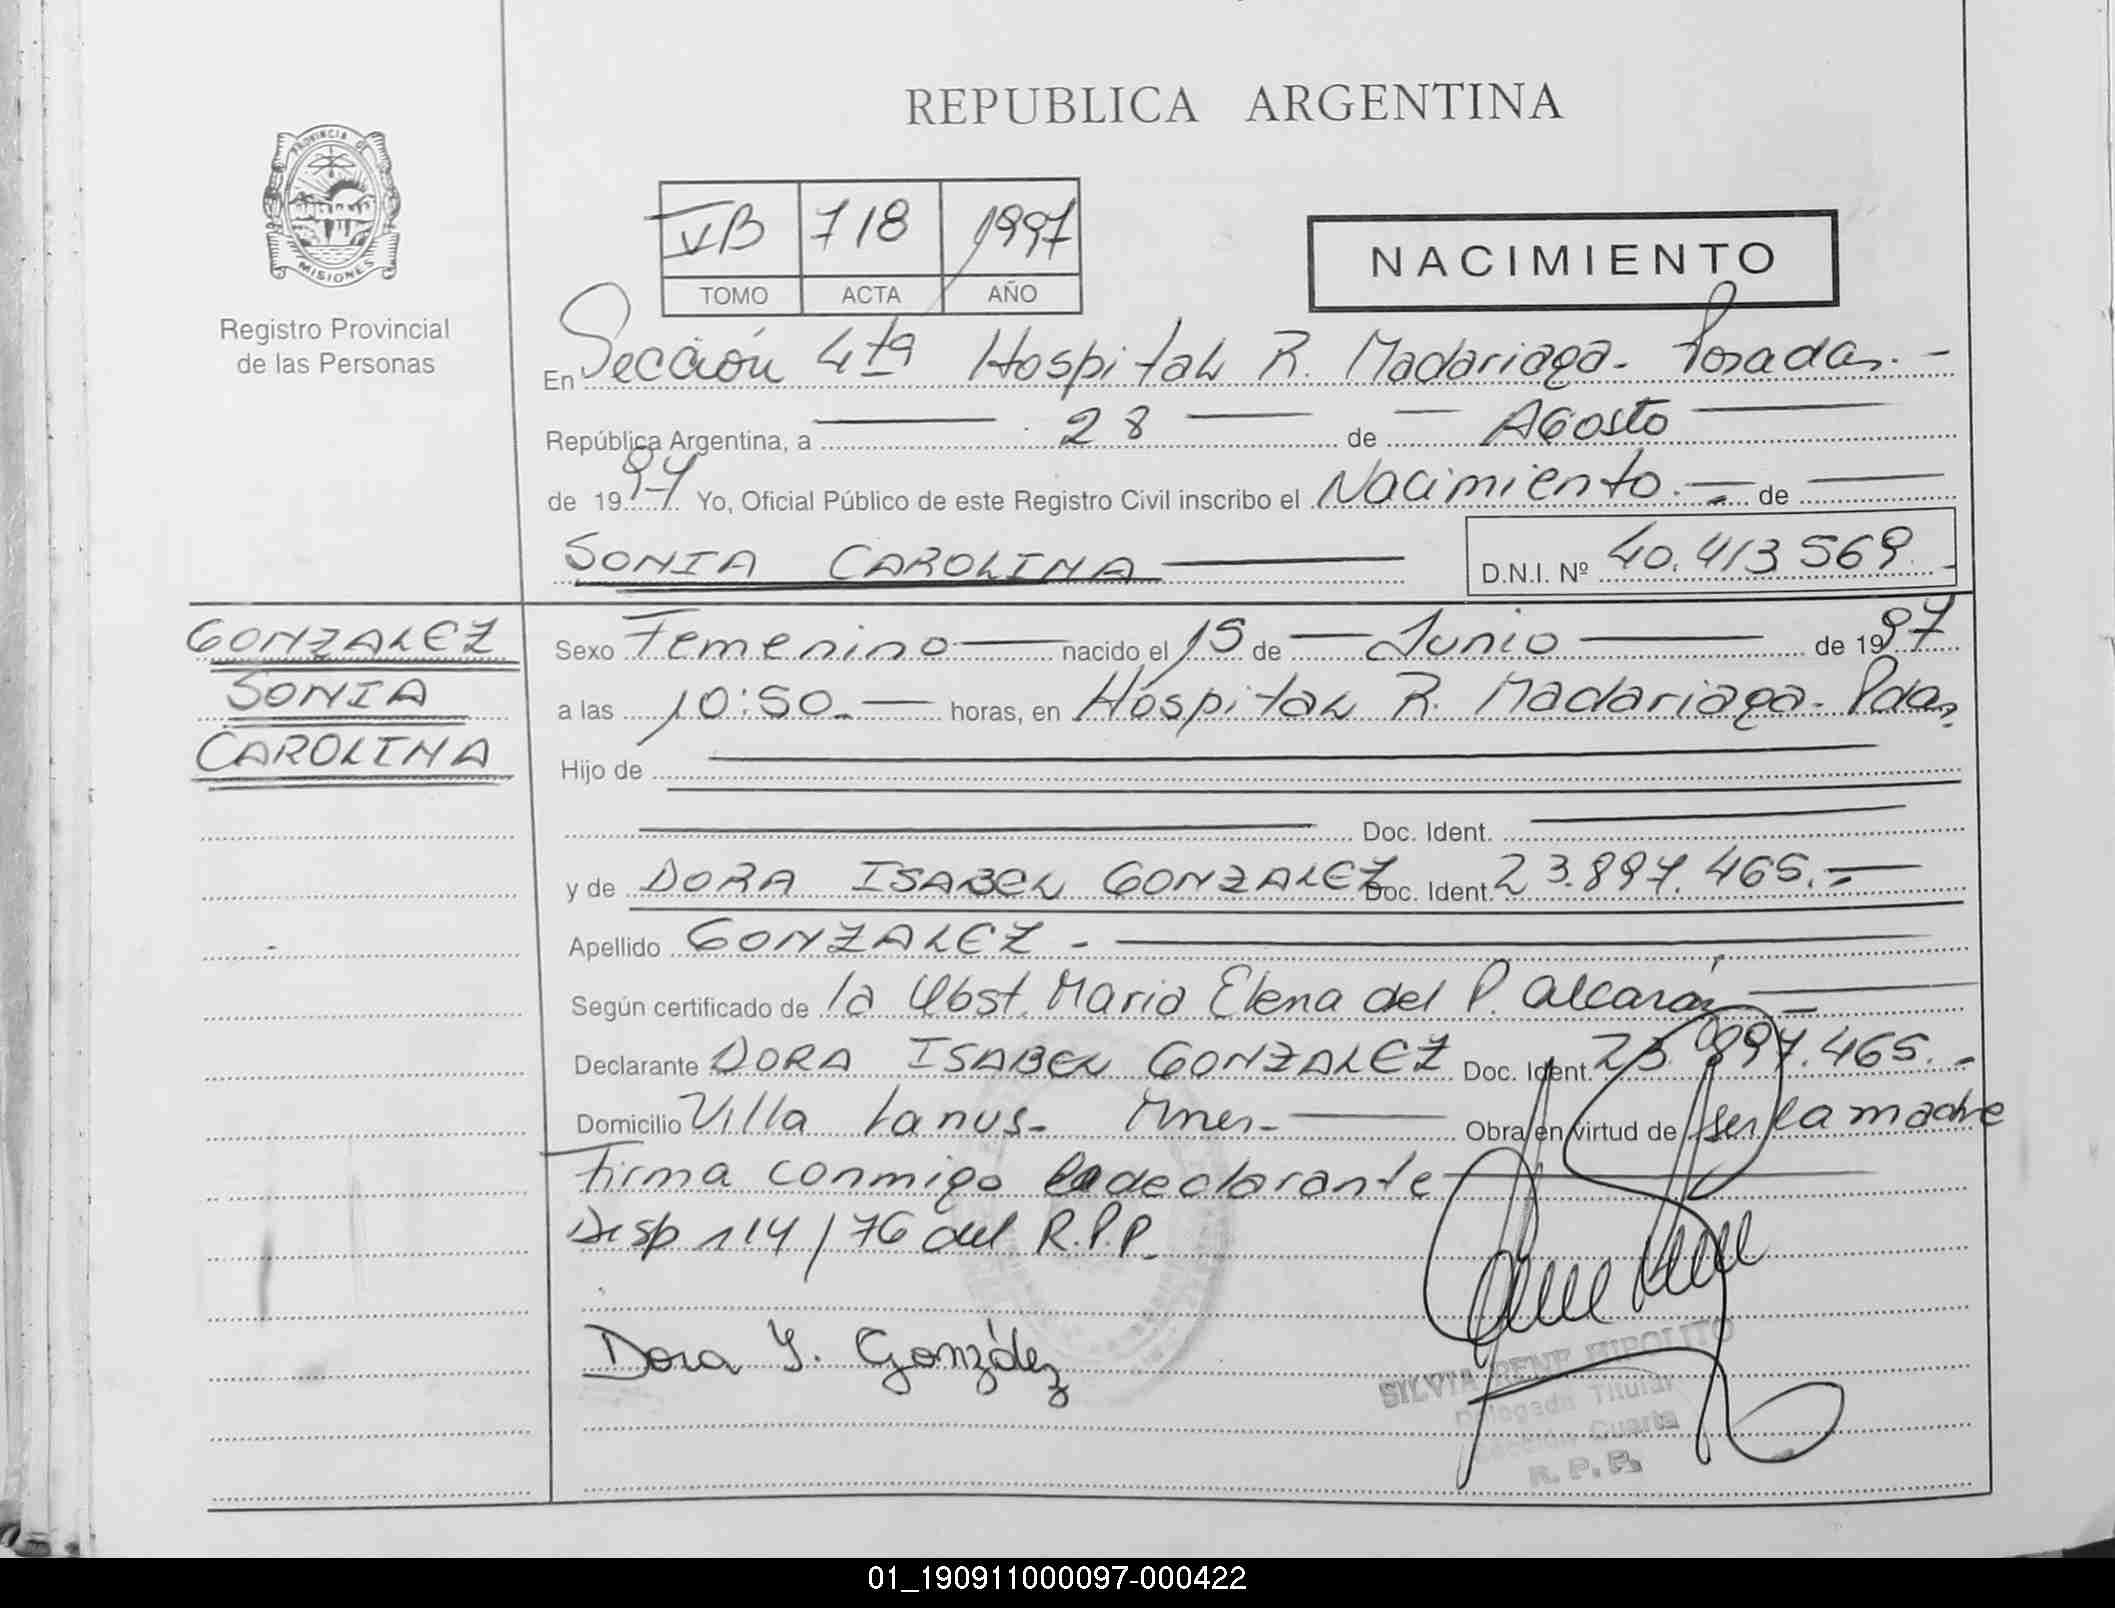 REPUBLICA ARGENTINA
PROVINCIA DE
MISIONES
Registro Provincial
de las Personas
VB 718 1997
TOMO ACTA AÑO
NACIMIENTO
En Sección 4ta Hospital R. Madariaga - Posadas. -
República Argentina, a 28 de Agosto
de 1997 Yo, Oficial Público de este Registro Civil inscribo el Nacimiento.- de
SONIA CAROLINA D.N.I. Nº 40.413569
GONZALEZ
SONIA
CAROLINA
Sexo Femenino nacido el 15 de Junio de 1997
a las 10:50.- horas, en Hospital R. Madariaga - Pdas
Hijo de
Doc. Ident.
y de DORA ISABEL GONZALEZ Doc. Ident. 23.897.465.-
Apellido GONZALEZ -
Según certificado de la Obst. Maria Elena del P. Alcaráz
Declarante DORA ISABEL GONZALEZ Doc. Ident. 23.897.465.-
Domicilio Villa Lanus - Mnes - Obra en virtud de ser la madre
Firma conmigo la declarante
Disp 114/76 del R.P.P.
Dora Y. González
SILVIA RENE HIPOLITO
Delegada Titular
Sección Cuarta
R.P.P.
01_190911000097-000422